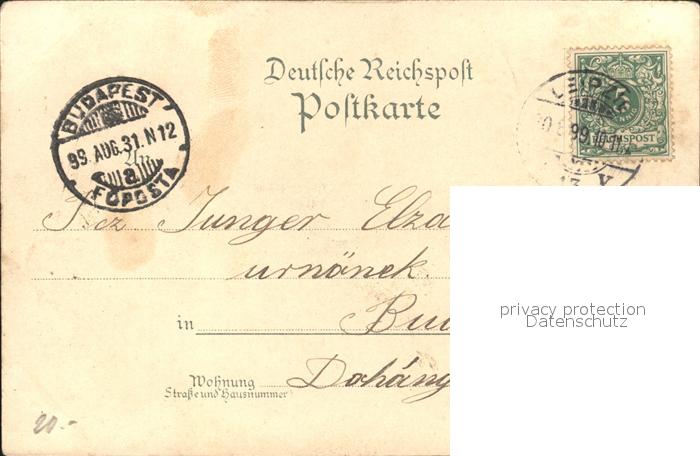 Deutsche Reichspost
Postkarte
BUDAPEST
99 AUG. 31. N 12
a
FŐPOSTA
LEIPZIG
99 10-11
13
REICHSPOST
Junger Elza
urnőnek.
in
Wohnung Dohány
Straße und Hausnummer
privacy protection
Datenschutz
20.-